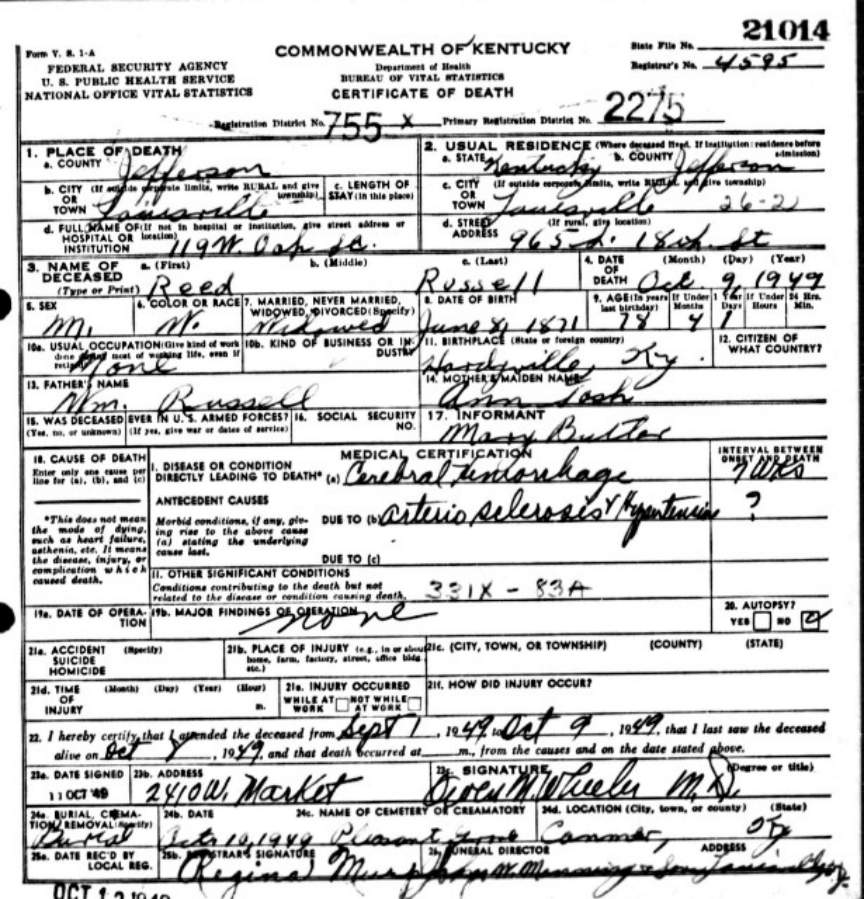 21014
Form V. S. 1-A
FEDERAL SECURITY AGENCY
U. S. PUBLIC HEALTH SERVICE
NATIONAL OFFICE VITAL STATISTICS
COMMONWEALTH OF KENTUCKY
Department of Health
BUREAU OF VITAL STATISTICS
CERTIFICATE OF DEATH
State File No.
Registrar's No. 4595
Registration District No. 755 x Primary Registration District No. 2275
1. PLACE OF DEATH
a. COUNTY Jefferson
2. USUAL RESIDENCE (Where deceased lived. If institution: residence before admission)
a. STATE Kentucky b. COUNTY Jefferson
b. CITY (If outside corporate limits, write RURAL and give township)
OR
TOWN Louisville
c. LENGTH OF
STAY (in this place)
c. CITY (If outside corporate limits, write RURAL and give township)
OR
TOWN Louisville 26-2
d. FULL NAME OF (If not in hospital or institution, give street address or location)
HOSPITAL OR
INSTITUTION 119 W. Oak St.
d. STREET (If rural, give location)
ADDRESS 965 S. 18th St
3. NAME OF
DECEASED
(Type or Print)
a. (First) b. (Middle) c. (Last)
Reed Russell
4. DATE (Month) (Day) (Year)
OF
DEATH Oct. 9, 1949
5. SEX
M.
6. COLOR OR RACE
W.
7. MARRIED, NEVER MARRIED,
WIDOWED, DIVORCED (Specify)
Widowed
8. DATE OF BIRTH
June 8, 1871
9. AGE (In years last birthday) If Under 1 Year Months Days If Under 24 Hrs. Hours Min.
78 4 1
10a. USUAL OCCUPATION (Give kind of work done most of working life, even if retired)
None
10b. KIND OF BUSINESS OR INDUSTRY
11. BIRTHPLACE (State or foreign country)
Hardyville, Ky.
12. CITIZEN OF
WHAT COUNTRY?
13. FATHER'S NAME
Wm. Russell
14. MOTHER'S MAIDEN NAME
Ann
15. WAS DECEASED EVER IN U. S. ARMED FORCES?
(Yes, no, or unknown) (If yes, give war or dates of service)
16. SOCIAL SECURITY
NO.
17. INFORMANT
Mary Butler
18. CAUSE OF DEATH
Enter only one cause per
line for (a), (b), and (c)
*This does not mean
the mode of dying,
such as heart failure,
asthenia, etc. It means
the disease, injury, or
complication which
caused death.
MEDICAL CERTIFICATION
I. DISEASE OR CONDITION
DIRECTLY LEADING TO DEATH* (a) Cerebral Hemorrhage
INTERVAL BETWEEN
ONSET AND DEATH
7 Wks
ANTECEDENT CAUSES
Morbid conditions, if any, giving rise to the above cause
(a) stating the underlying
cause last.
DUE TO (b) arterio sclerosis & Hypertension ?
DUE TO (c)
II. OTHER SIGNIFICANT CONDITIONS
Conditions contributing to the death but not
related to the disease or condition causing death.
331X - 83A
19a. DATE OF OPERATION
19b. MAJOR FINDINGS OF OPERATION
none
20. AUTOPSY?
YES NO
21a. ACCIDENT (Specify)
SUICIDE
HOMICIDE
21b. PLACE OF INJURY (e.g., in or about
home, farm, factory, street, office bldg.
etc.)
21c. (CITY, TOWN, OR TOWNSHIP) (COUNTY) (STATE)
21d. TIME (Month) (Day) (Year) (Hour)
OF
INJURY m.
21e. INJURY OCCURRED
WHILE AT WORK NOT WHILE AT WORK
21f. HOW DID INJURY OCCUR?
22. I hereby certify that I attended the deceased from Sept 1, 1949 to Oct 9, 1949, that I last saw the deceased
alive on Oct 8, 1949, and that death occurred at m., from the causes and on the date stated above.
23a. DATE SIGNED
11 OCT '49
23b. ADDRESS
2410 W. Market
23c. SIGNATURE (Degree or title)
Wheeler M.D.
24a. BURIAL, CREMATION, REMOVAL (Specify)
Burial
24b. DATE
Oct. 10, 1949
24c. NAME OF CEMETERY OR CREMATORY
Pleasant
24d. LOCATION (City, town, or county) (State)
Canmer, Ky
25a. DATE REC'D BY
LOCAL REG.
25b. REGISTRAR'S SIGNATURE
Regina
26. FUNERAL DIRECTOR ADDRESS
OCT 1 2 1949